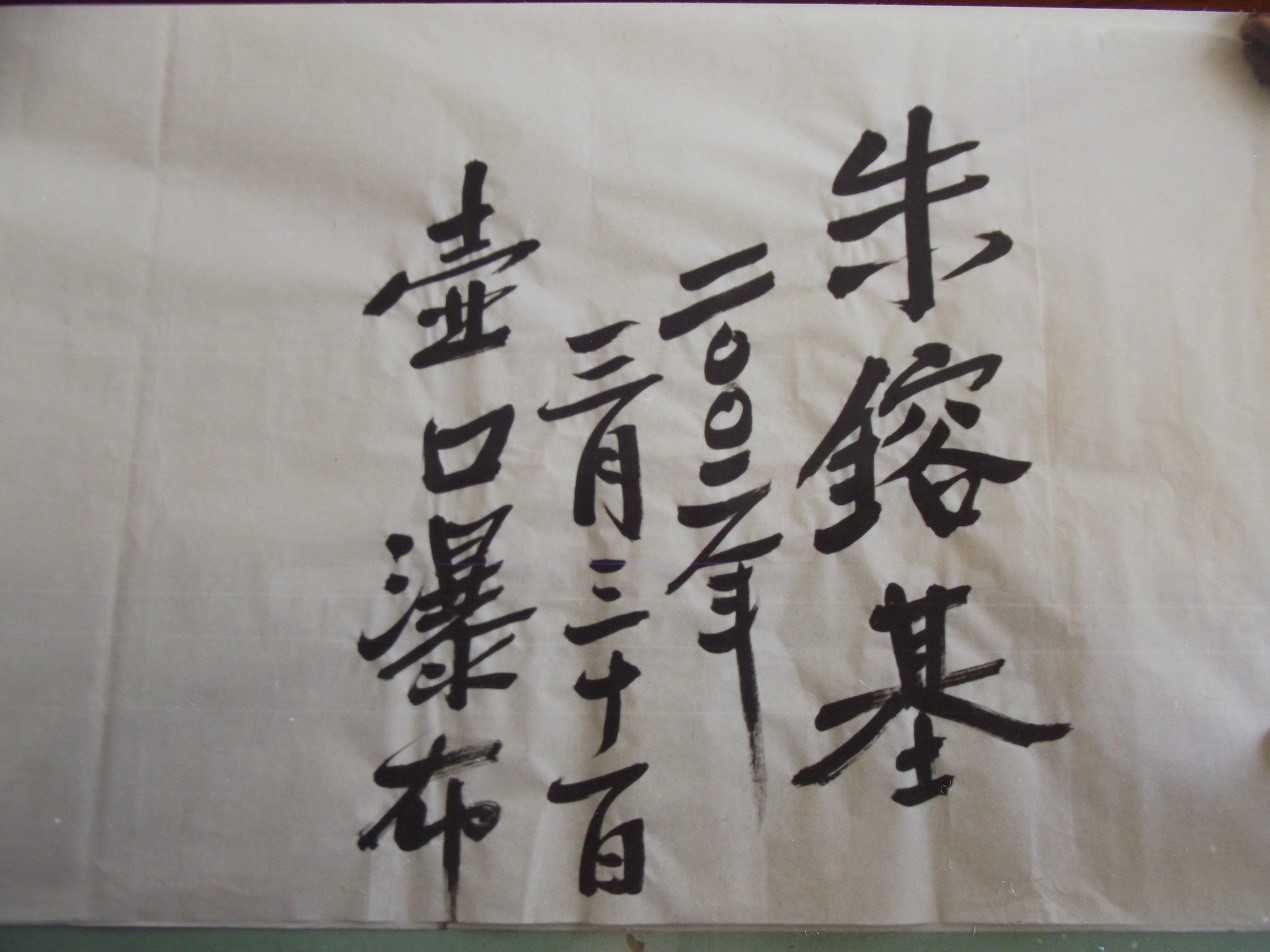 朱鎔基
二〇〇二年
三月三十一日
壶口瀑布